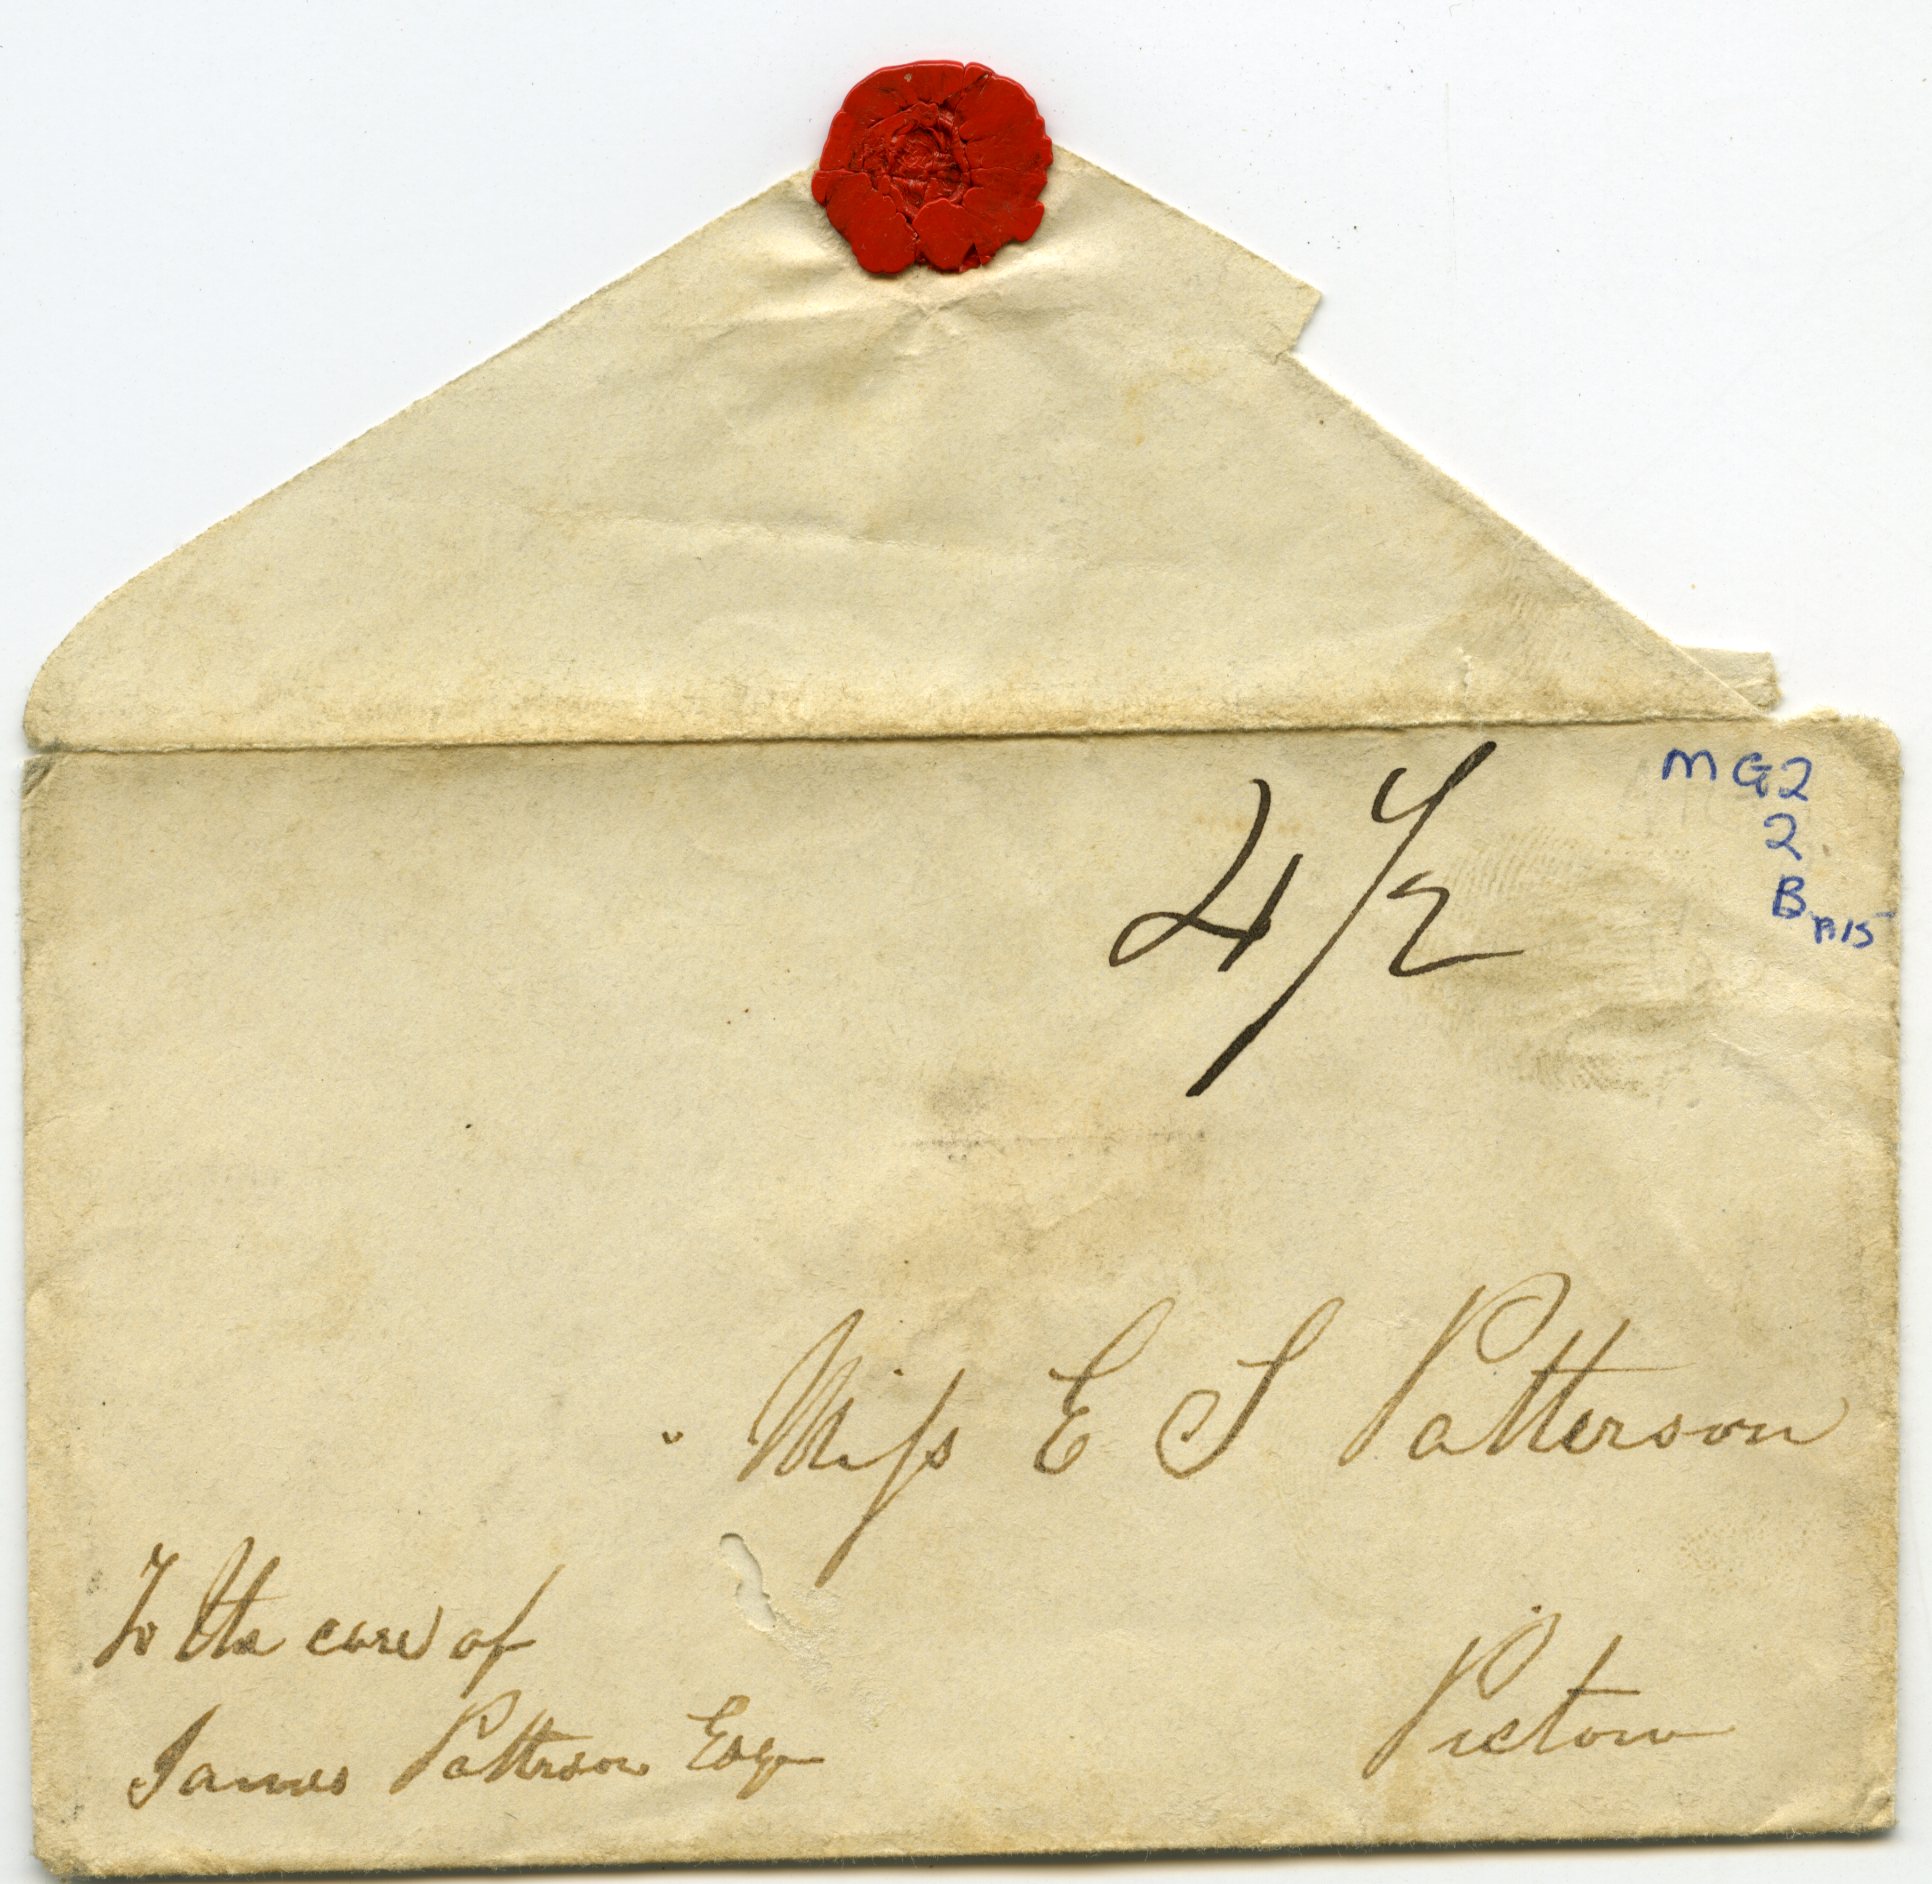 4 1/2
MG2
2
B n15
Miss E S Patterson
To the care of
James Patterson Esqr
Pictou